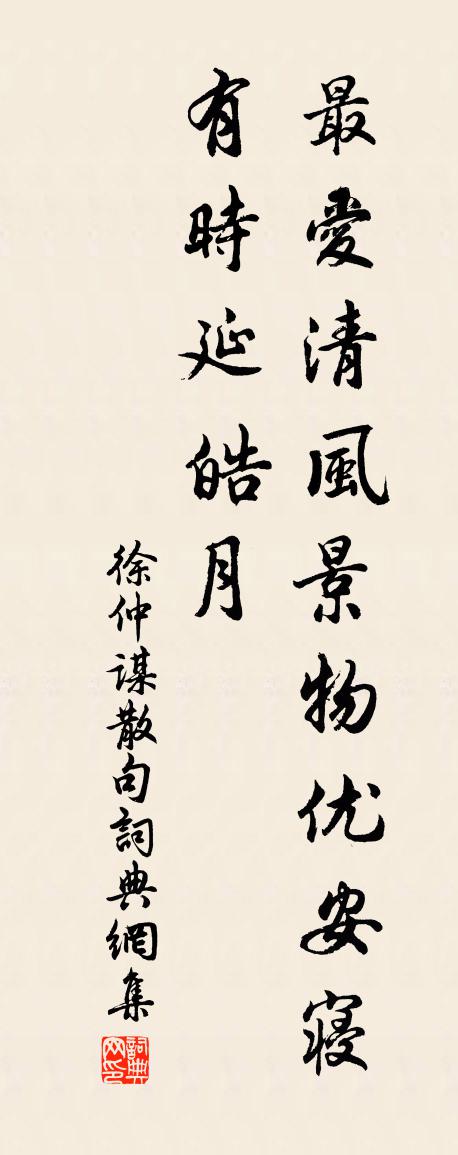 最愛清風景物优安寢
有時延皓月
徐仲謀散句詞典網集
詞典网印